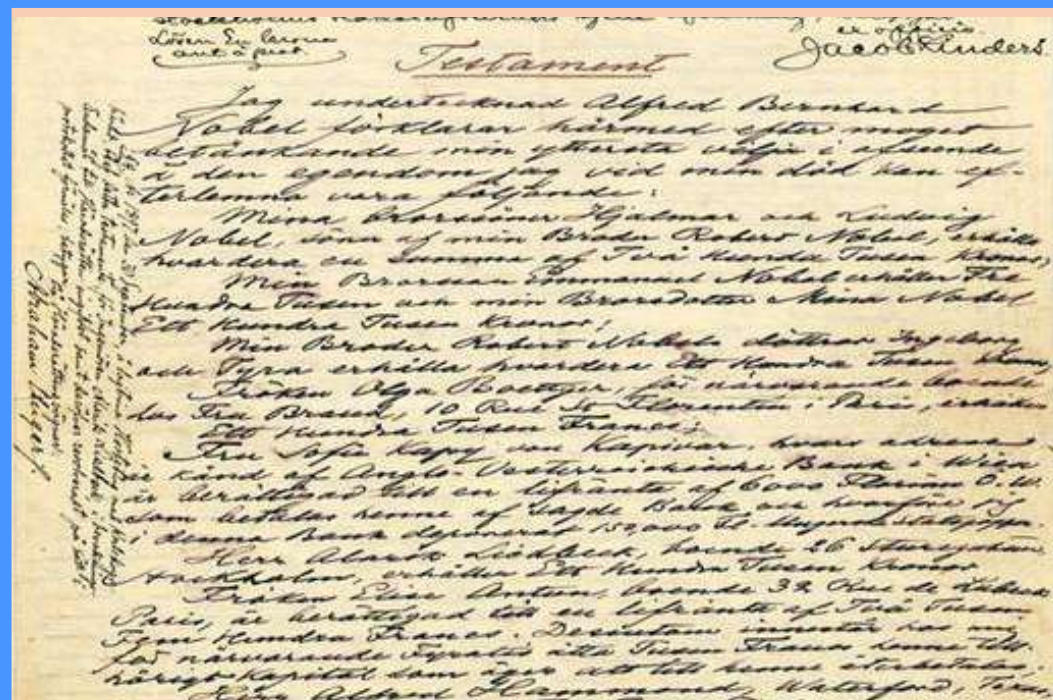 Lösen En krona
Jacob Linders
Testament
Jag undertecknad Alfred Bernhard
Nobel förklarar härmed efter moget
betänkande min yttersta vilja i afseende
å den egendom jag vid min död kan ef-
terlemna vara följande:
Mina Brorsöner Hjalmar och Ludvig
Nobel, söner af min Broder Robert Nobel, erhålla
hvardera en summa af Två Hundra Tusen Kronor;
Min Brorson Emmanuel Nobel erhåller Tre
Hundra Tusen och min Brorsdotter Mina Nobel
Ett Hundra Tusen Kronor;
Min Broder Robert Nobels döttrar Ingeborg
och Tyra erhålla hvardera Ett Hundra Tusen Kronor
Fröken Olga Boettger, för närvarande boende
hos Fru Brand, 10 Rue St Florentin i Paris, erhåller
Ett Hundra Tusen Francs;
Fru Sofie Kapy von Kapivar, hvars adress
är känd af Anglo-Oesterreichische Bank i Wien
är berättigad till en lifränta af 6000 Florins Ö.W.
som betalas henne af sagde Bank och hvarföre jag
i denna Bank deponerat 150,000 Fl.
Herr Alarik Liedbeck, boende 26 Sturegatan,
Stockholm, erhåller Ett Hundra Tusen Kronor
Fröken Elise Antun, boende 32 Rue de Lubeck
Paris, är berättigad till en lifränta af Två Tusen
Fem Hundra Francs. Dessutom innestår hos mig
för närvarande Fyratio åtta Tusen Francs henne till-
hörigt Kapital som äger att till henne återbetalas.
Herr Alfred Hammond, Waterford, Texas